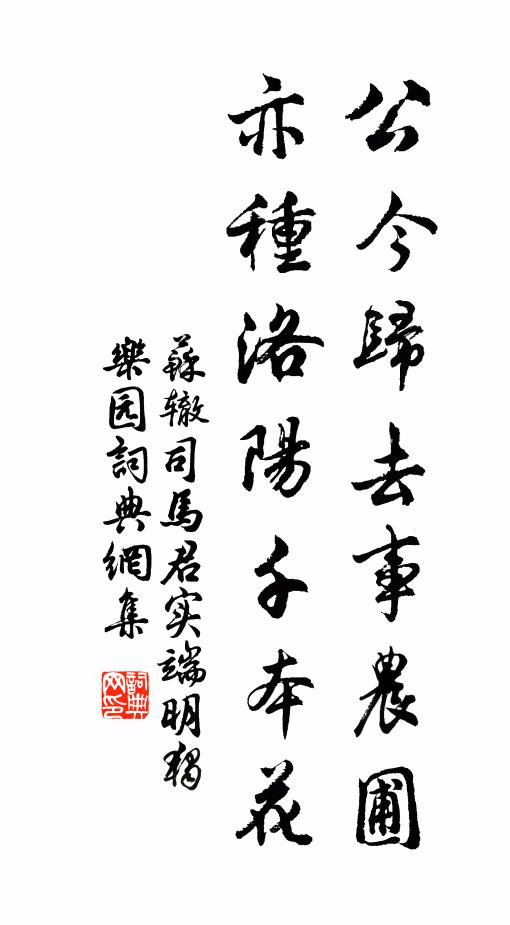 公今歸去事農圃
亦種洛陽千本花
蘇辙司馬君实端明獨
樂园詞典網集
詞典网印